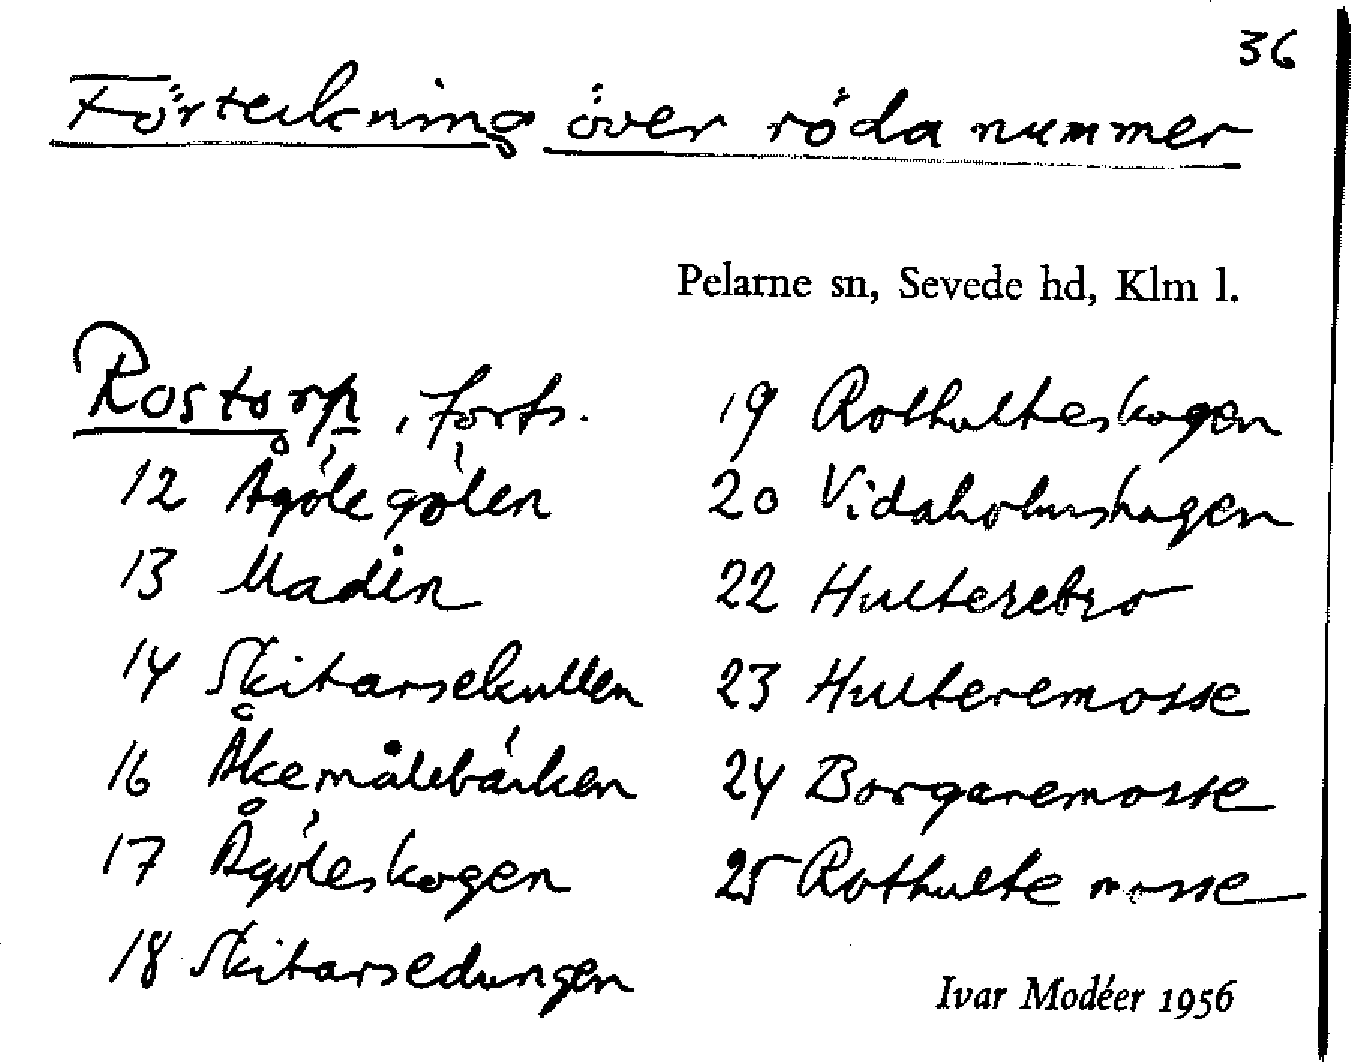 36
Förteckning över röda nummer
Pelarne sn, Sevede hd, Klm l.
Rostorp, forts.
12 Ågölegölen
13 Maden
14 Skitarsekullen
16 Åkemålebäcken
17 Ågöleskogen
18 Skitarsedungen
19 Rothulteskogen
20 Vidaholmshagen
22 Hulterebro
23 Hulteremosse
24 Borgaremosse
25 Rothulte mosse
Ivar Modéer 1956